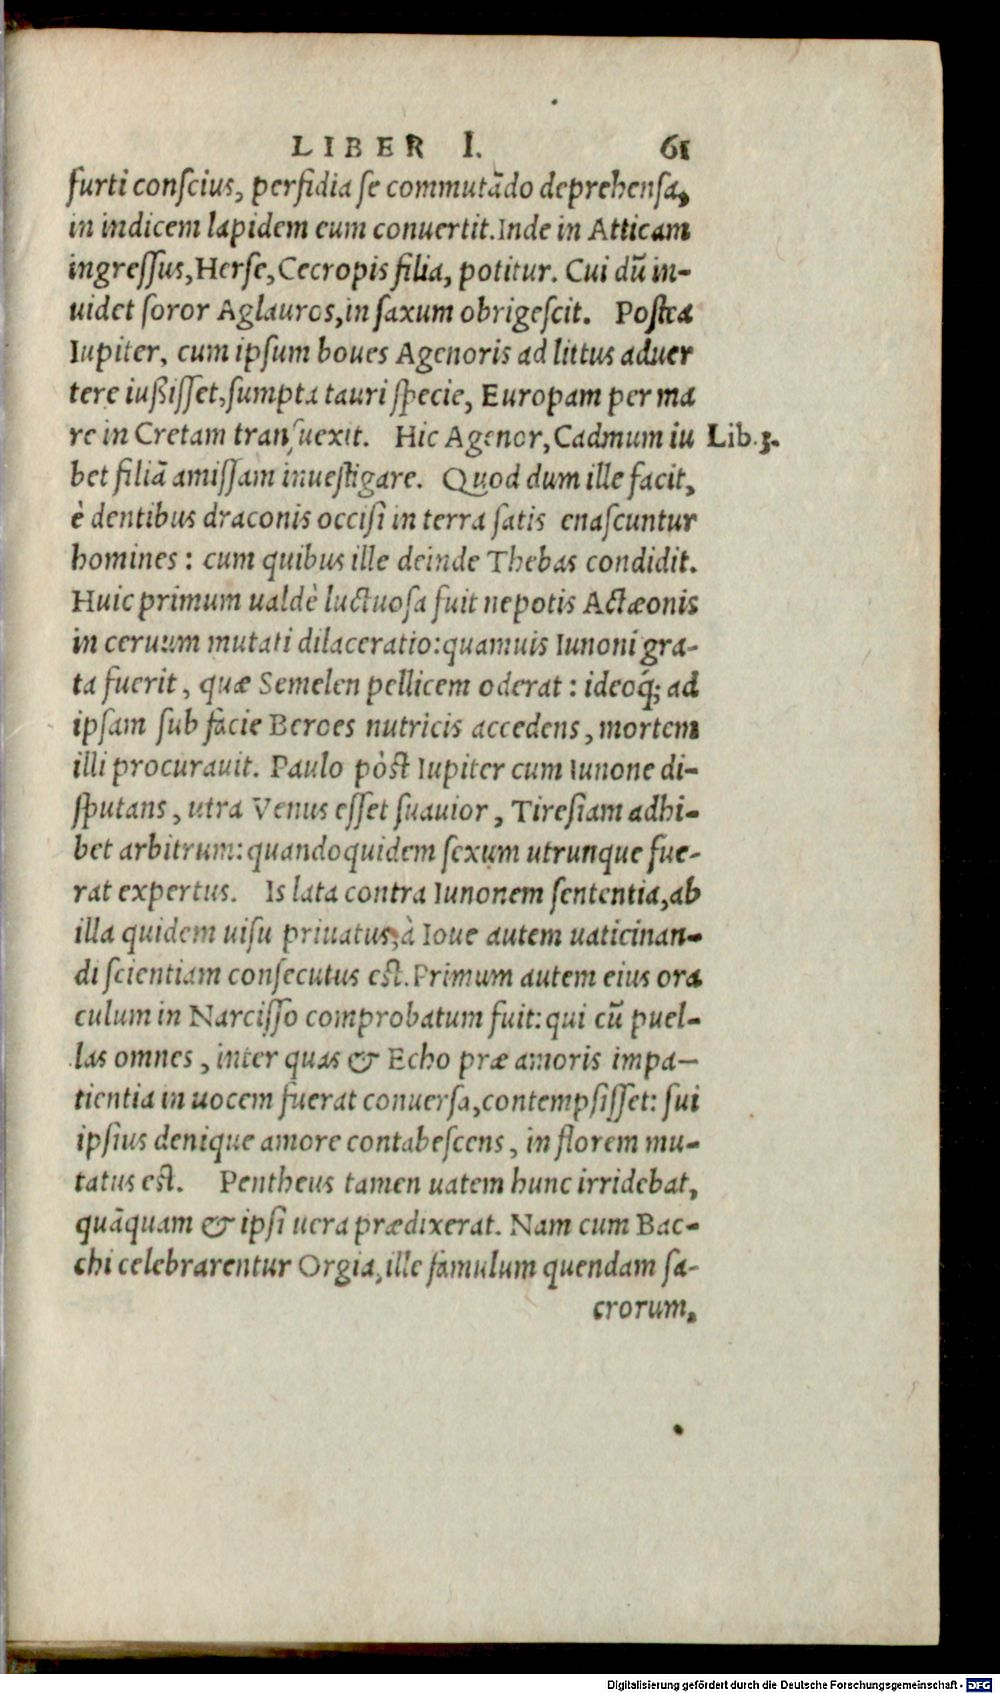 LIBER I. 61
furti conscius, perfidia se commutādo deprehensa,
in indicem lapidem eum conuertit. Inde in Atticam
ingressus, Herse, Cecropis filia, potitur. Cui dū in-
uidet soror Aglauros, in saxum obrigescit. Postea
Iupiter, cum ipsum boues Agenoris ad littus aduer
tere iußisset, sumpta tauri specie, Europam per ma
re in Cretam transuexit. Hic Agenor, Cadmum iu Lib.3.
bet filiā amissam inuestigare. Quod dum ille facit,
è dentibus draconis occisi in terra satis enascuntur
homines: cum quibus ille deinde Thebas condidit.
Huic primum ualdè luctuosa fuit nepotis Actæonis
in ceruum mutati dilaceratio: quamuis Iunoni gra-
ta fuerit, quæ Semelen pellicem oderat: ideoq́; ad
ipsam sub facie Beroes nutricis accedens, mortem
illi procurauit. Paulo pòst Iupiter cum Iunone di-
sputans, utra Venus esset suauior, Tiresiam adhi-
bet arbitrum: quandoquidem sexum utrunque fue-
rat expertus. Is lata contra Iunonem sententia, ab
illa quidem uisu priuatus, à Ioue autem uaticinan-
di scientiam consecutus est. Primum autem eius ora
culum in Narcisso comprobatum fuit: qui cū puel-
las omnes, inter quas & Echo præ amoris impa-
tientia in uocem fuerat conuersa, contempsisset: sui
ipsius denique amore contabescens, in florem mu-
tatus est. Pentheus tamen uatem hunc irridebat,
quāquam & ipsi uera prædixerat. Nam cum Bac-
chi celebrarentur Orgia, ille famulum quendam sa-
crorum,
Digitalisierung gefördert durch die Deutsche Forschungsgemeinschaft - DFG